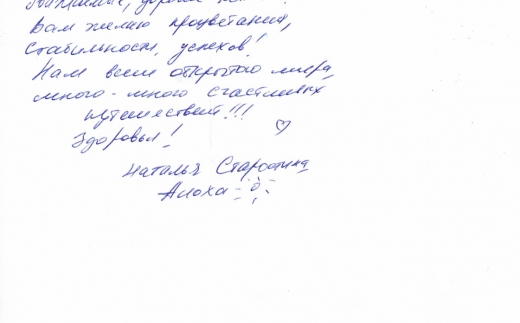 дорогие
Вам желаю процветания,
стабильности, успехов!
Нам всем открытого мира,
много-много счастливых
путешествий!!!
Здоровья! ♡
Наталья Старостина
Алоха